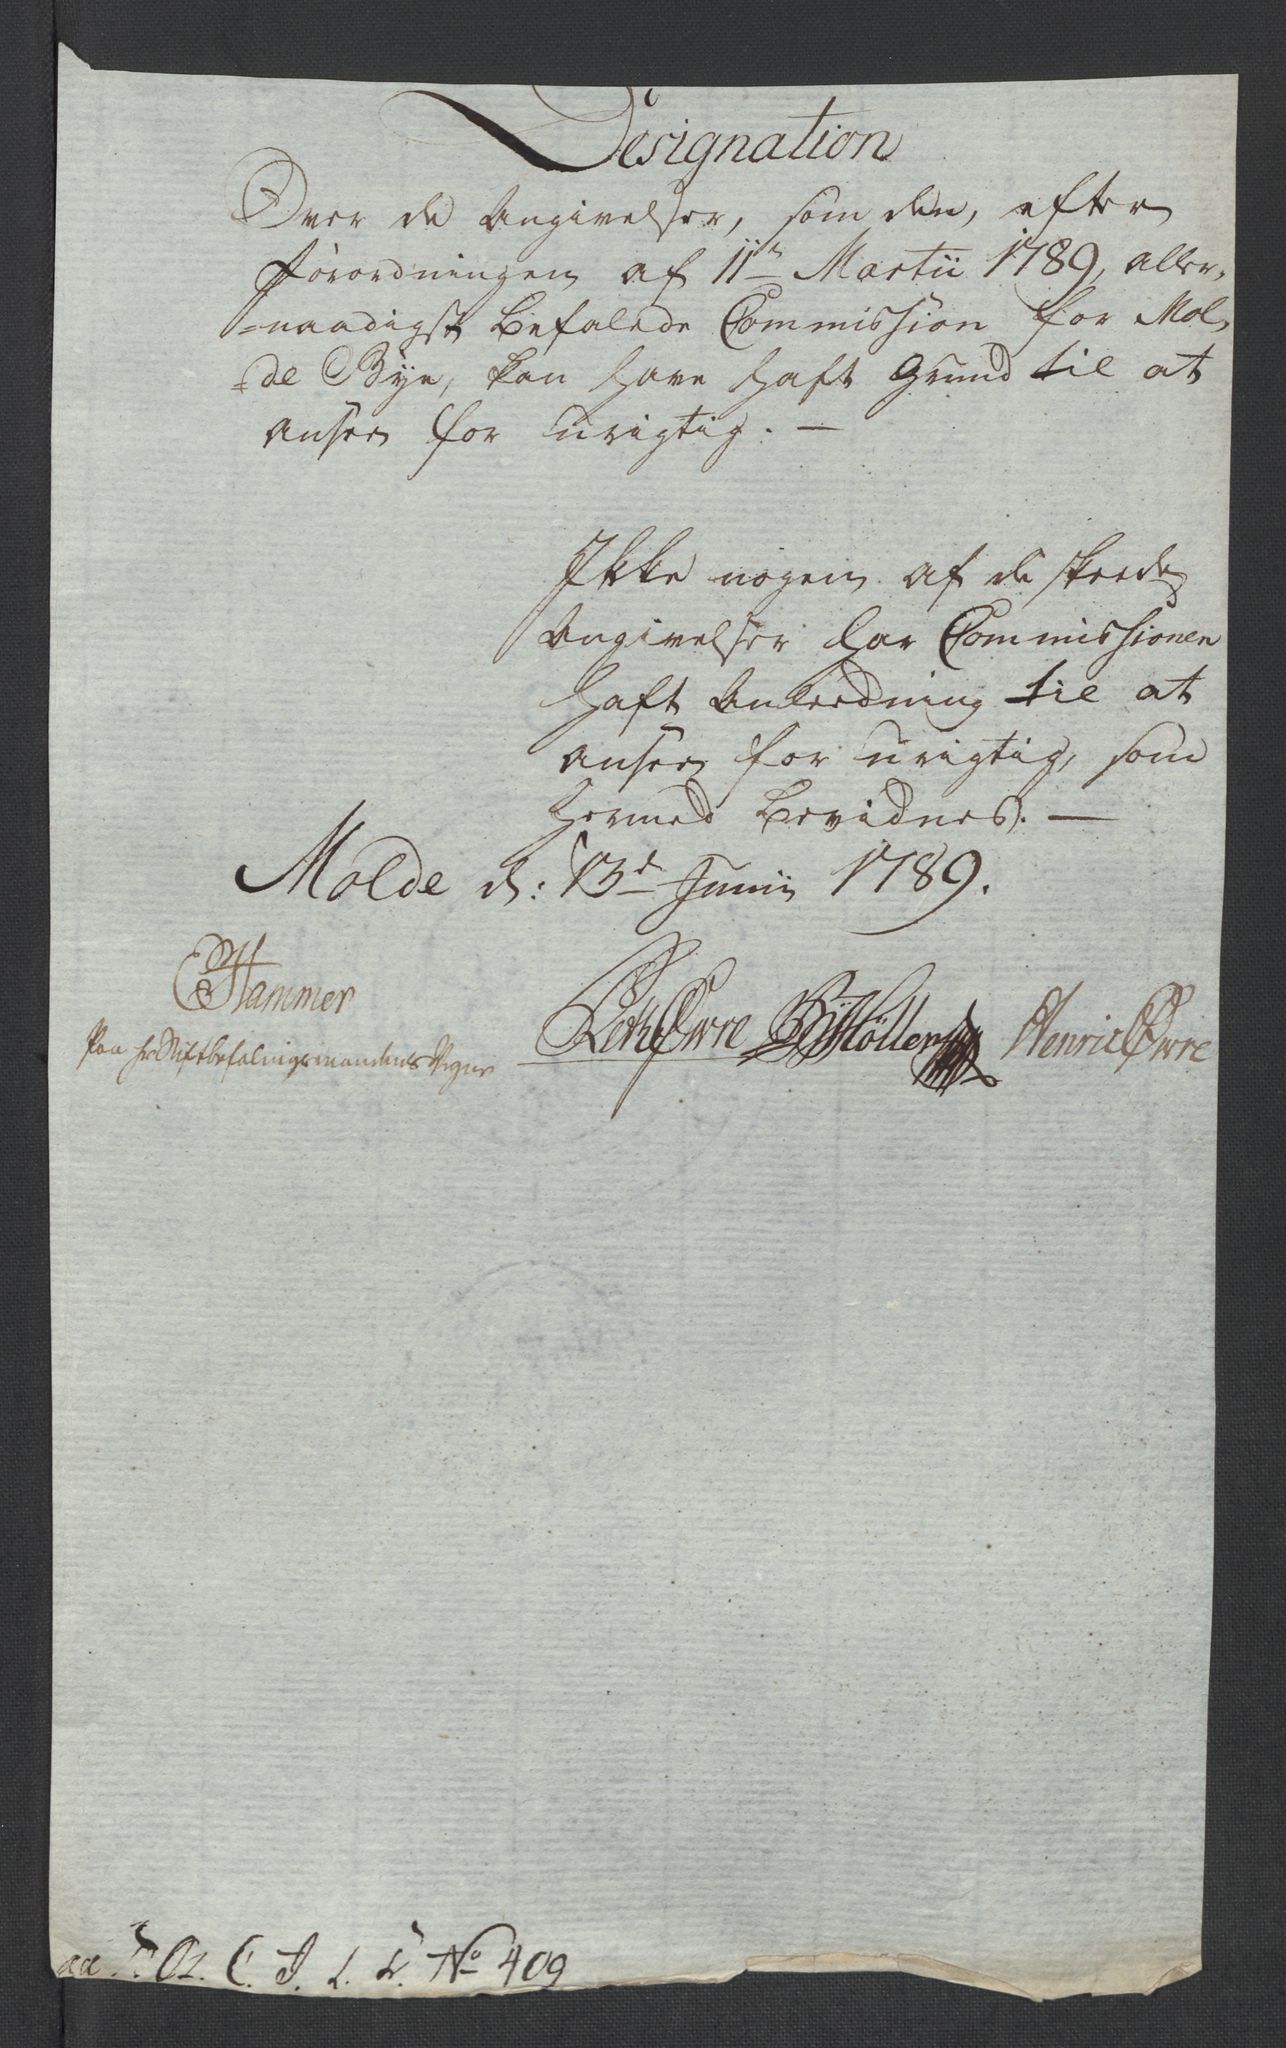 Designation
Over de Angivelser, som den, efter
Forordningen af 11te Martii 1789, aller-
=naadigst befalede Commission for Mol-
=de Bye, kan have haft Grund til at
ansee for urigtig. —
Ikke nogen af de skeede
Angivelser har Commissionen
haft Anledning til at
ansee for urigtig, som
hermed bevidnes. —
Molde d: 13d Junii 1789.
Hammer
Paa Hr Stiftbefalingsmandens Vegne
Øwre Möller Henric Øwre
No 409